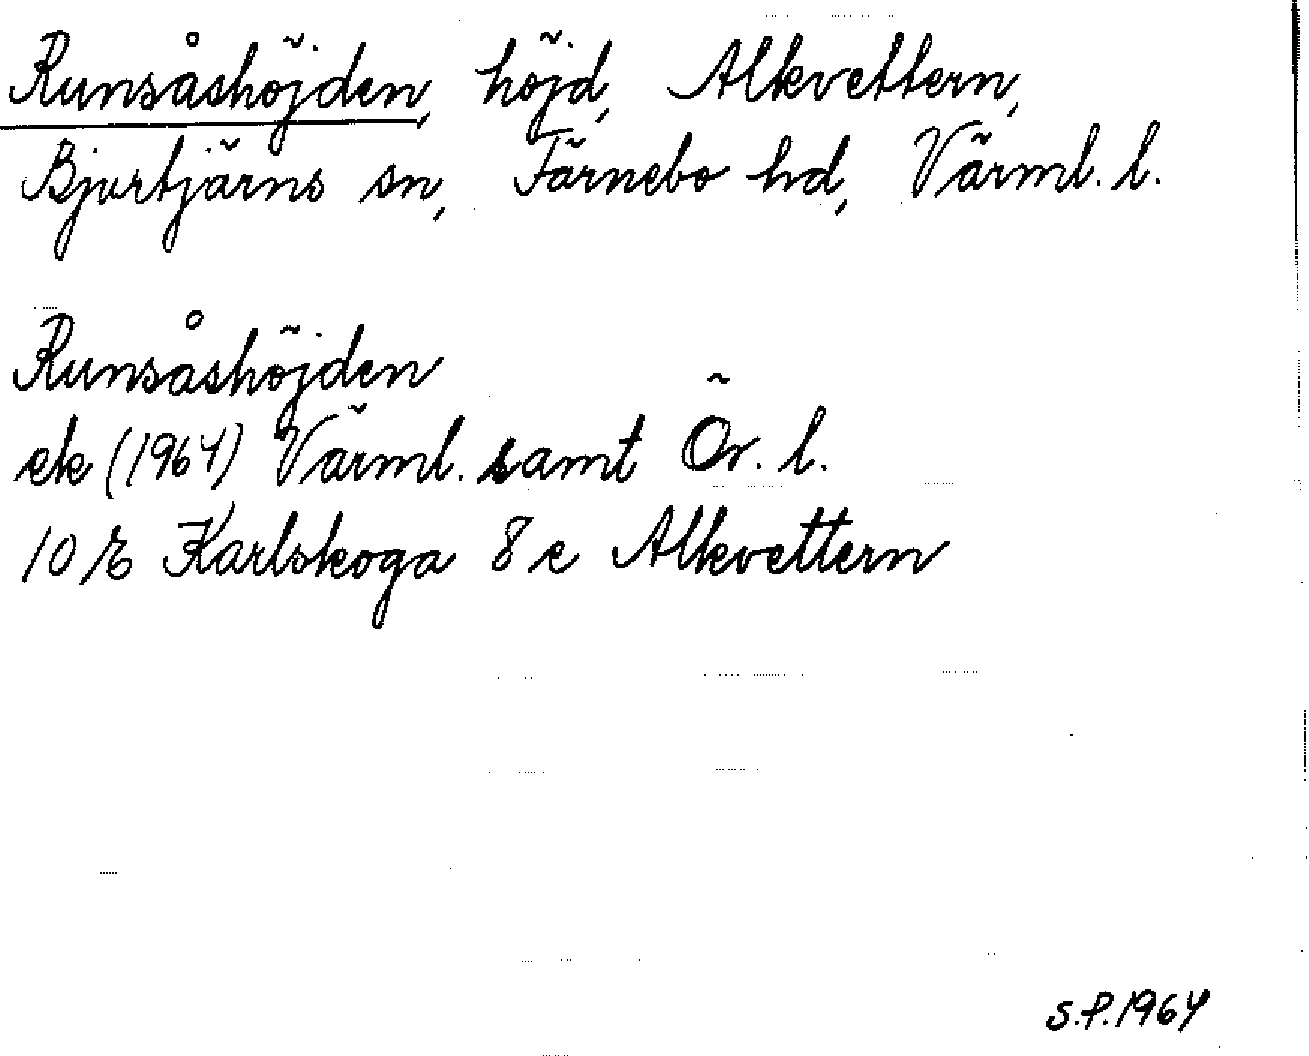 Runsåshöjden, höjd, Alkvettern,
Bjurtjärns sn, Färnebo hd, Värml. l.
Runsåshöjden
ek (1964) Värml. samt Ör. l.
10 E Karlskoga 8 e Alkvettern
S.P. 1964